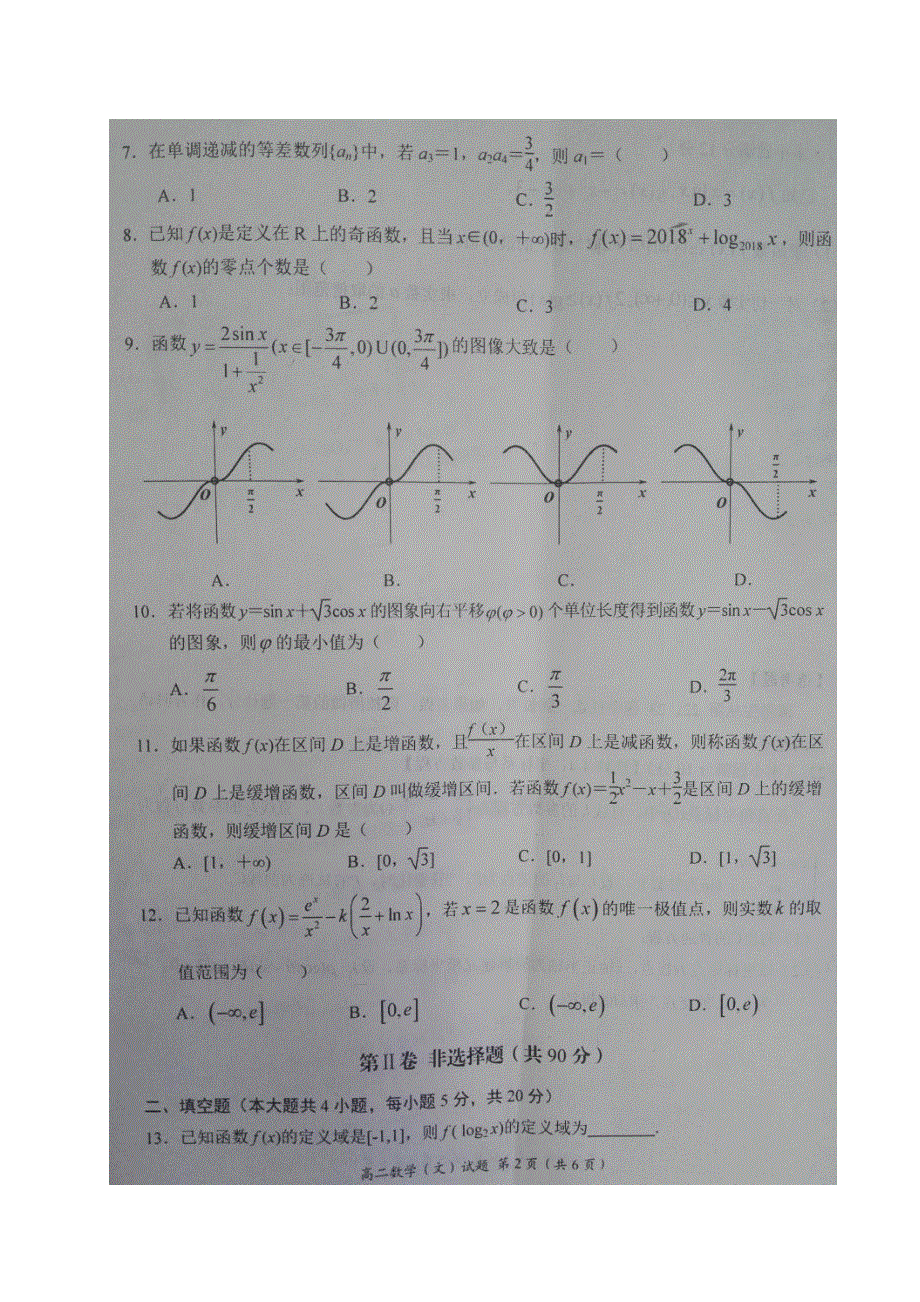 7．在单调递减的等差数列{aₙ}中，若 a₃＝1，a₂a₄＝3/4，则 a₁＝（　　）
A．1　B．2　C．3/2　D．3
8．已知 f (x)是定义在 R 上的奇函数，且当 x∈(0，+∞)时，f(x) = 2018ˣ + log₂₀₁₈ x，则函
数 f (x)的零点个数是（　　）
A．1　B．2　C．3　D．4
9．函数 y = 2sin x/(1+1/x²) (x∈[−3π/4,0)∪(0,3π/4])的图像大致是（　　）
y　y　y　y
O　π/2　x　O　π/2　x　O　π/2　x　O　π/2　x
A．　B．　C．　D．
10．若将函数 y＝sin x＋√3cos x 的图象向右平移φ(φ > 0) 个单位长度得到函数 y＝sin x－√3cos x
的图象，则 φ 的最小值为（　　）
A．π/6　B．π/2　C．π/3　D．2π/3
11．如果函数 f (x)在区间 D 上是增函数，且f（x）/x在区间 D 上是减函数，则称函数 f (x)在区
间 D 上是缓增函数，区间 D 叫做缓增区间．若函数 f(x)＝1/2x²－x＋3/2是区间 D 上的缓增
函数，则缓增区间 D 是（　　）
A．[1，+∞)　B．[0，√3]　C．[0，1]　D．[1，√3]
12．已知函数 f(x) = eˣ/x² − k(2/x + ln x)，若 x = 2 是函数 f(x) 的唯一极值点，则实数 k 的取
值范围为（　　）
A．(−∞,e]　B．[0,e]　C．(−∞,e)　D．[0,e)
第 II 卷 非选择题（共 90 分）
二、填空题（本大题共 4 小题，每小题 5 分，共 20 分）
13．已知函数 f (x)的定义域是[-1,1]，则 f ( log₂ x)的定义域为________.
高二数学（文）试题 第 2 页（共 6 页）